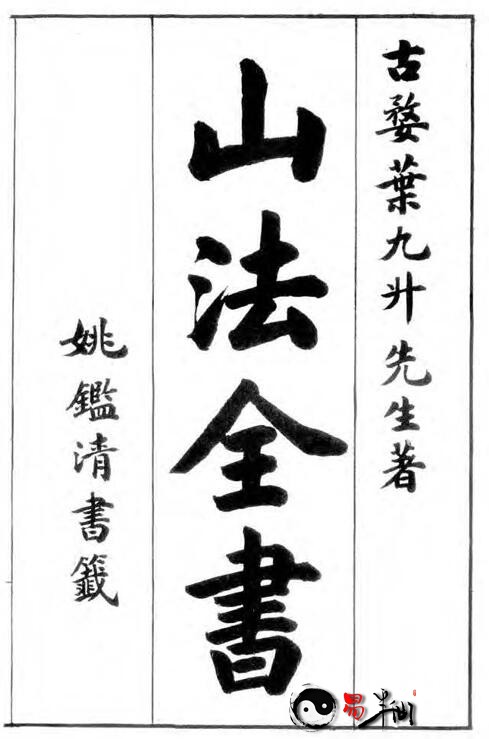 古婺葉九升先生著
山法全書
姚鑑清書籤
易半仙